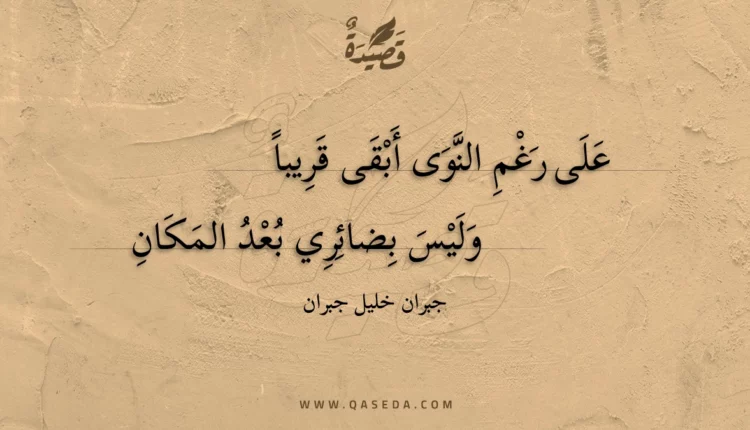 قَصِيدَةٌ
عَلَى رَغْمِ النَّوَى أَبْقَى قَرِيباً
وَلَيْسَ بِضائِرِي بُعْدُ المَكَانِ
جبران خليل جبران
WWW.QASEDA.COM